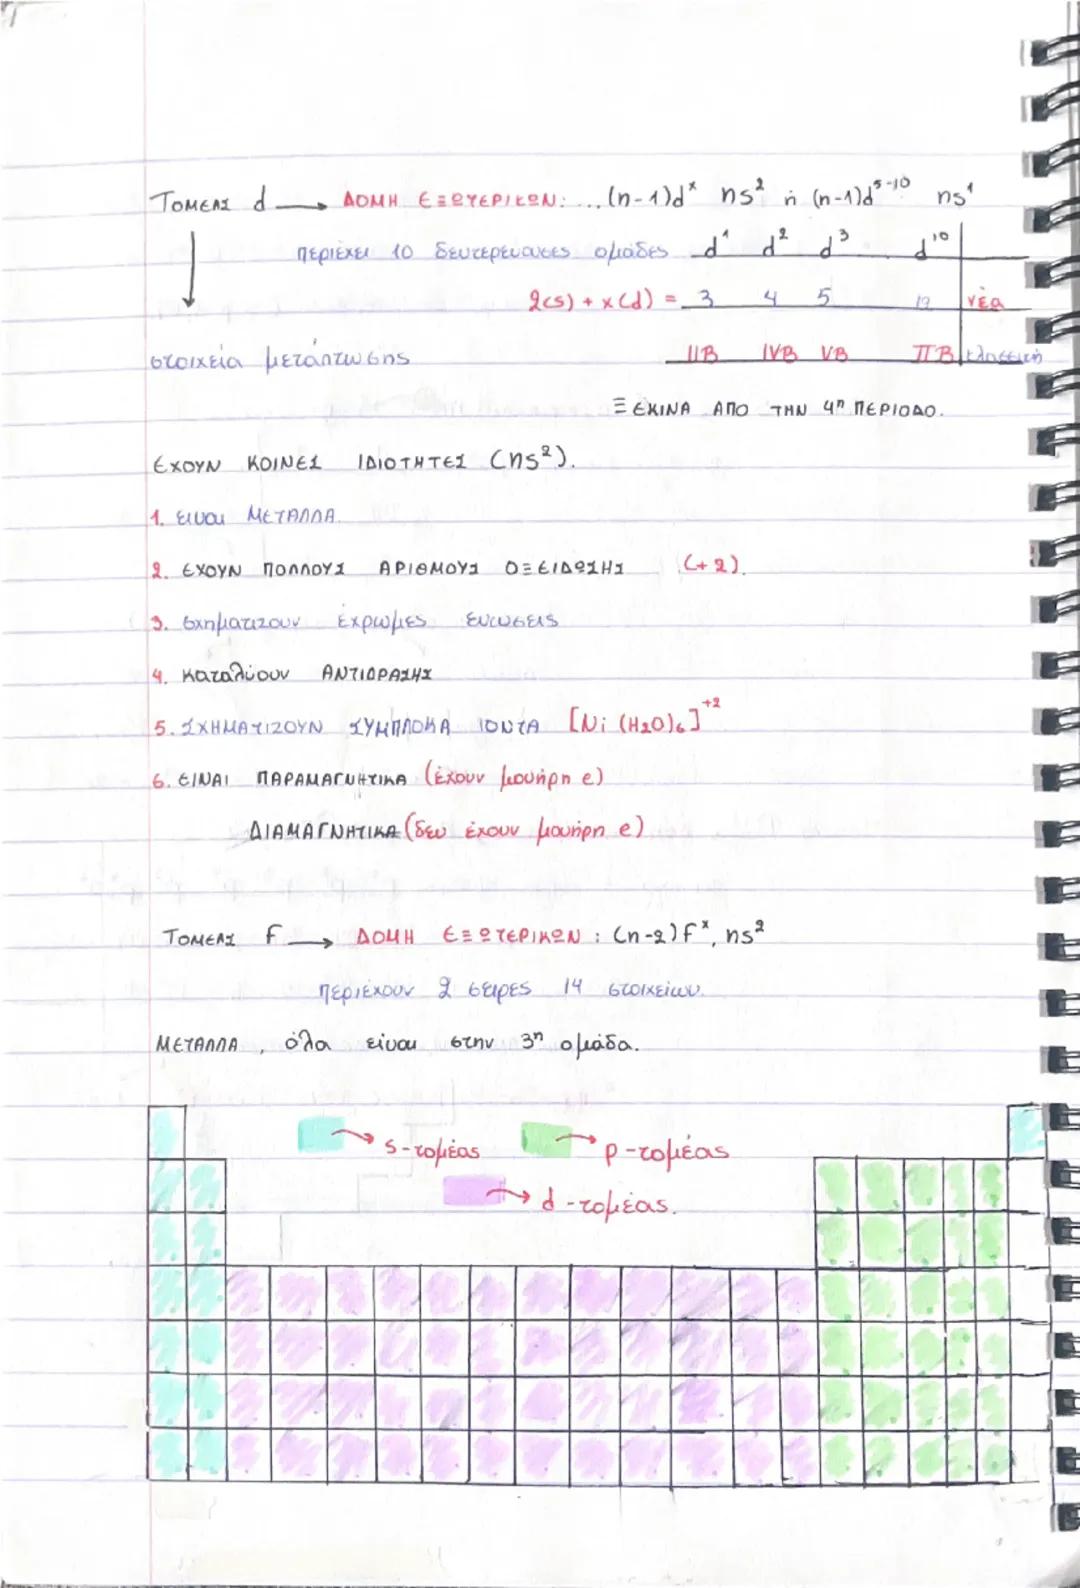 ΤΟΜΕΑΣ d → ΔΟΜΗ ΕΞΩΤΕΡΙΚΩΝ: ... (n-1)dˣ ns² ή (n-1)d⁵⁻¹⁰ ns¹
περιέχει 10 δευτερεύουσες ομάδες d¹ d² d³ d¹⁰
2(s) + x(d) = 3 4 5 12 νέα
στοιχεία μετάπτωσης IIB IVB VB IIB κλασσική
ΞΕΚΙΝΑ ΑΠΟ ΤΗΝ 4η ΠΕΡΙΟΔΟ.
ΕΧΟΥΝ ΚΟΙΝΕΣ ΙΔΙΟΤΗΤΕΣ (ns²).
1. είναι ΜΕΤΑΛΛΑ.
2. ΕΧΟΥΝ ΠΟΛΛΟΥΣ ΑΡΙΘΜΟΥΣ ΟΞΕΙΔΩΣΗΣ (+2).
3. σχηματίζουν έχρωμες ενώσεις
4. καταλύουν ΑΝΤΙΔΡΑΣΗΣ
5. ΣΧΗΜΑΤΙΖΟΥΝ ΣΥΜΠΛΟΚΑ ΙΟΝΤΑ [Ni (H2O)6]⁺²
6. ΕΙΝΑΙ ΠΑΡΑΜΑΓΝΗΤΙΚΑ (έχουν μονήρη e)
ΔΙΑΜΑΓΝΗΤΙΚΑ (δεν έχουν μονήρη e)
ΤΟΜΕΑΣ f → ΔΟΜΗ ΕΞΩΤΕΡΙΚΩΝ : (n-2)fˣ, ns²
περιέχουν 2 σειρες 14 στοιχείων.
ΜΕΤΑΛΛΑ, όλα είναι στην 3η ομάδα.
→ s-τομέας → p-τομέας
→ d-τομέας.